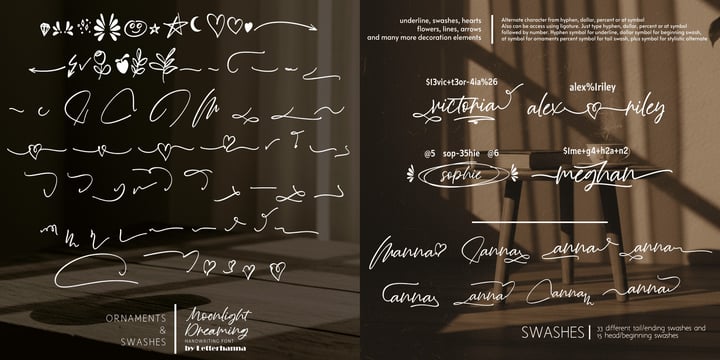 ORNAMENTS
&
SWASHES
Moonlight
Dreaming
HANDWRITING FONT
by Letterhanna
underline, swashes, hearts
flowers, lines, arrows
and many more decoration elements
Alternate character from hyphen, dollar, percent or at symbol
Also can be access using ligature. Just type hyphen, dollar, percent or at symbol
followed by number. Hyphen symbol for underline, dollar symbol for beginning swash,
at symbol for ornaments percent symbol for tail swash, plus symbol for stylistic alternate
$13vic+t3or-4ia%26
victoria
alex%1riley
alex riley
@5 sop-35hie @6
sophie
$1me+g4+h2a+n2
meghan
hanna hanna hanna hanna
hanna hanna hanna hanna
SWASHES
33 different tail/ending swashes and
15 head/beginning swashes